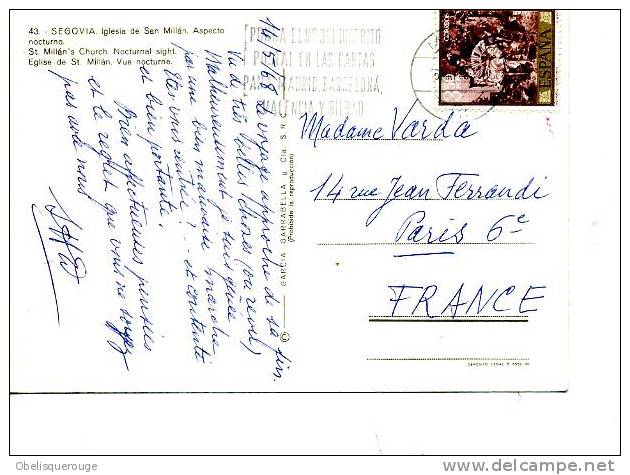 43. - SEGOVIA. Iglesia de San Millán. Aspecto
nocturno.
St. Millán's Church. Nocturnal sight.
Eglise de St. Millán. Vue nocturne.
16/5/68 Le voyage approche de sa fin.
Vu de très belles choses (ou revu),
Malheureusement je suis
par une bien mauvaise marche.
Etes vous rentrée? et contente
et bien portante.
Bien affectueuses pensées
et le regret que vous ne soyez
pas avec nous
GARCIA GARRABELLA y Cía. S.R.C.
(Prohibida la reproducción)
©
PONGA EL Nº DEL DISTRITO
POSTAL EN LAS CARTAS
PARA MADRID, BARCELONA,
VALENCIA Y BILBAO
CORREOS
ESPAÑA
Madame Varda
14 rue Jean Ferrandi
Paris 6e
FRANCE
DEPOSITO LEGAL B
Obelisquerouge
delcampe.net